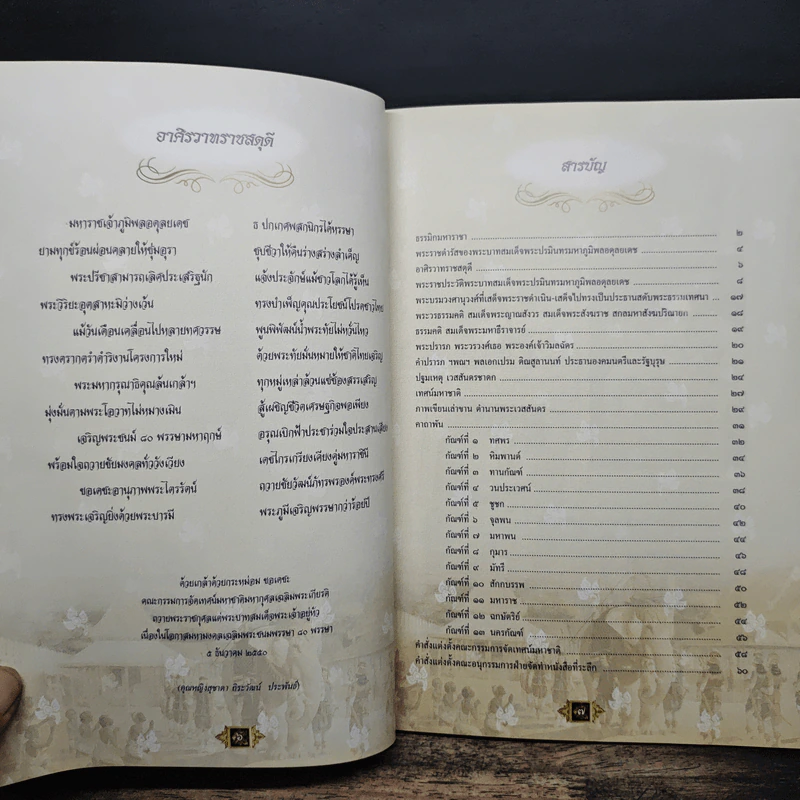 อาศิรวาทราชสดุดี
มหาราชเจ้าภูมิพลอดุลยเดช ธ ปกเกศพสกนิกรได้หรรษา
ยามทุกข์ร้อนผ่อนคลายให้ชุ่มอุรา ชุบชีวาให้คืนร่างสร้างสำเค็ญ
พระปรีชาสามารถเลิศประเสริฐนัก แจ้งประจักษ์แม้ชาวโลกได้รู้เห็น
พระวิริยะอุตสาหะมิว่างเว้น ทรงบำเพ็ญคุณประโยชน์โปรดชาวไทย
แม้วันเดือนเคลื่อนไปหลายทศวรรษ พูนพิพัฒน์น้ำพระทัยไม่หวั่นไหว
ทรงตรากตรำดำริงานโครงการใหม่ ด้วยพระทัยมั่นหมายให้ชาติไทยเจริญ
พระมหากรุณาธิคุณล้นเกล้าฯ ทุกหมู่เหล่าล้วนแซ่ซ้องสรรเสริญ
มุ่งมั่นตามพระโอวาทไม่หมางเมิน สู้เผชิญชีวิตเศรษฐกิจพอเพียง
เจริญพระชนม์ ๘๐ พรรษามหาฤกษ์ อรุณเบิกฟ้าประชาร่วมใจประสานเสียง
พร้อมใจถวายชัยมงคลทั่ววังเวียง เดชไกรเกรียงเคียงคู่มหาราชินี
ขอเดชะอานุภาพพระไตรรัตน์ ถวายชัยวัฒน์ภัทรพรองค์พระทรงศรี
ทรงพระเจริญยิ่งด้วยพระบารมี พระภูมีเจริญพรรษากว่าร้อยปี
ด้วยเกล้าด้วยกระหม่อม ขอเดชะ
คณะกรรมการจัดเทศน์มหาชาติมหากุศลเฉลิมพระเกียรติ
ถวายพระราชกุศลแด่พระบาทสมเด็จพระเจ้าอยู่หัว
เนื่องในโอกาสมหามงคลเฉลิมพระชนมพรรษา ๘๐ พรรษา
๕ ธันวาคม ๒๕๕๐
(คุณหญิงสุชาดา ถิระวัฒน์ ประพันธ์)
๖
สารบัญ
ธรรมิกมหาราชา ๒
พระราชดำรัสของพระบาทสมเด็จพระปรมินทรมหาภูมิพลอดุลยเดช ๔
อาศิรวาทราชสดุดี ๖
พระราชประวัติพระบาทสมเด็จพระปรมินทรมหาภูมิพลอดุลยเดช ๘
พระบรมวงศานุวงศ์ที่เสด็จพระราชดำเนิน-เสด็จไปทรงเป็นประธานสดับพระธรรมเทศนา ๑๗
พระวรธรรมคติ สมเด็จพระญาณสังวร สมเด็จพระสังฆราช สกลมหาสังฆปริณายก ๑๘
ธรรมคติ สมเด็จพระมหาธีราจารย์ ๑๙
พระปรารภ พระวรวงศ์เธอ พระองค์เจ้าวิมลฉัตร ๒๐
คำปรารภ ฯพณฯ พลเอกเปรม ติณสูลานนท์ ประธานองคมนตรีและรัฐบุรุษ ๒๑
ปฐมเหตุ เวสสันดรชาดก ๒๔
เทศน์มหาชาติ ๒๗
ภาพเขียนเล่าขาน ตำนานพระเวสสันดร ๒๙
คาถาพัน ๓๑
กัณฑ์ที่ ๑ ทศพร ๓๒
กัณฑ์ที่ ๒ หิมพานต์ ๓๔
กัณฑ์ที่ ๓ ทานกัณฑ์ ๓๖
กัณฑ์ที่ ๔ วนประเวศน์ ๓๘
กัณฑ์ที่ ๕ ชูชก ๔๐
กัณฑ์ที่ ๖ จุลพน ๔๒
กัณฑ์ที่ ๗ มหาพน ๔๔
กัณฑ์ที่ ๘ กุมาร ๔๖
กัณฑ์ที่ ๙ มัทรี ๔๘
กัณฑ์ที่ ๑๐ สักกบรรพ ๕๐
กัณฑ์ที่ ๑๑ มหาราช ๕๒
กัณฑ์ที่ ๑๒ ฉกษัตริย์ ๕๔
กัณฑ์ที่ ๑๓ นครกัณฑ์ ๕๖
คำสั่งแต่งตั้งคณะกรรมการจัดเทศน์มหาชาติ ๕๘
คำสั่งแต่งตั้งคณะอนุกรรมการฝ่ายจัดทำหนังสือที่ระลึก ๖๐
๗